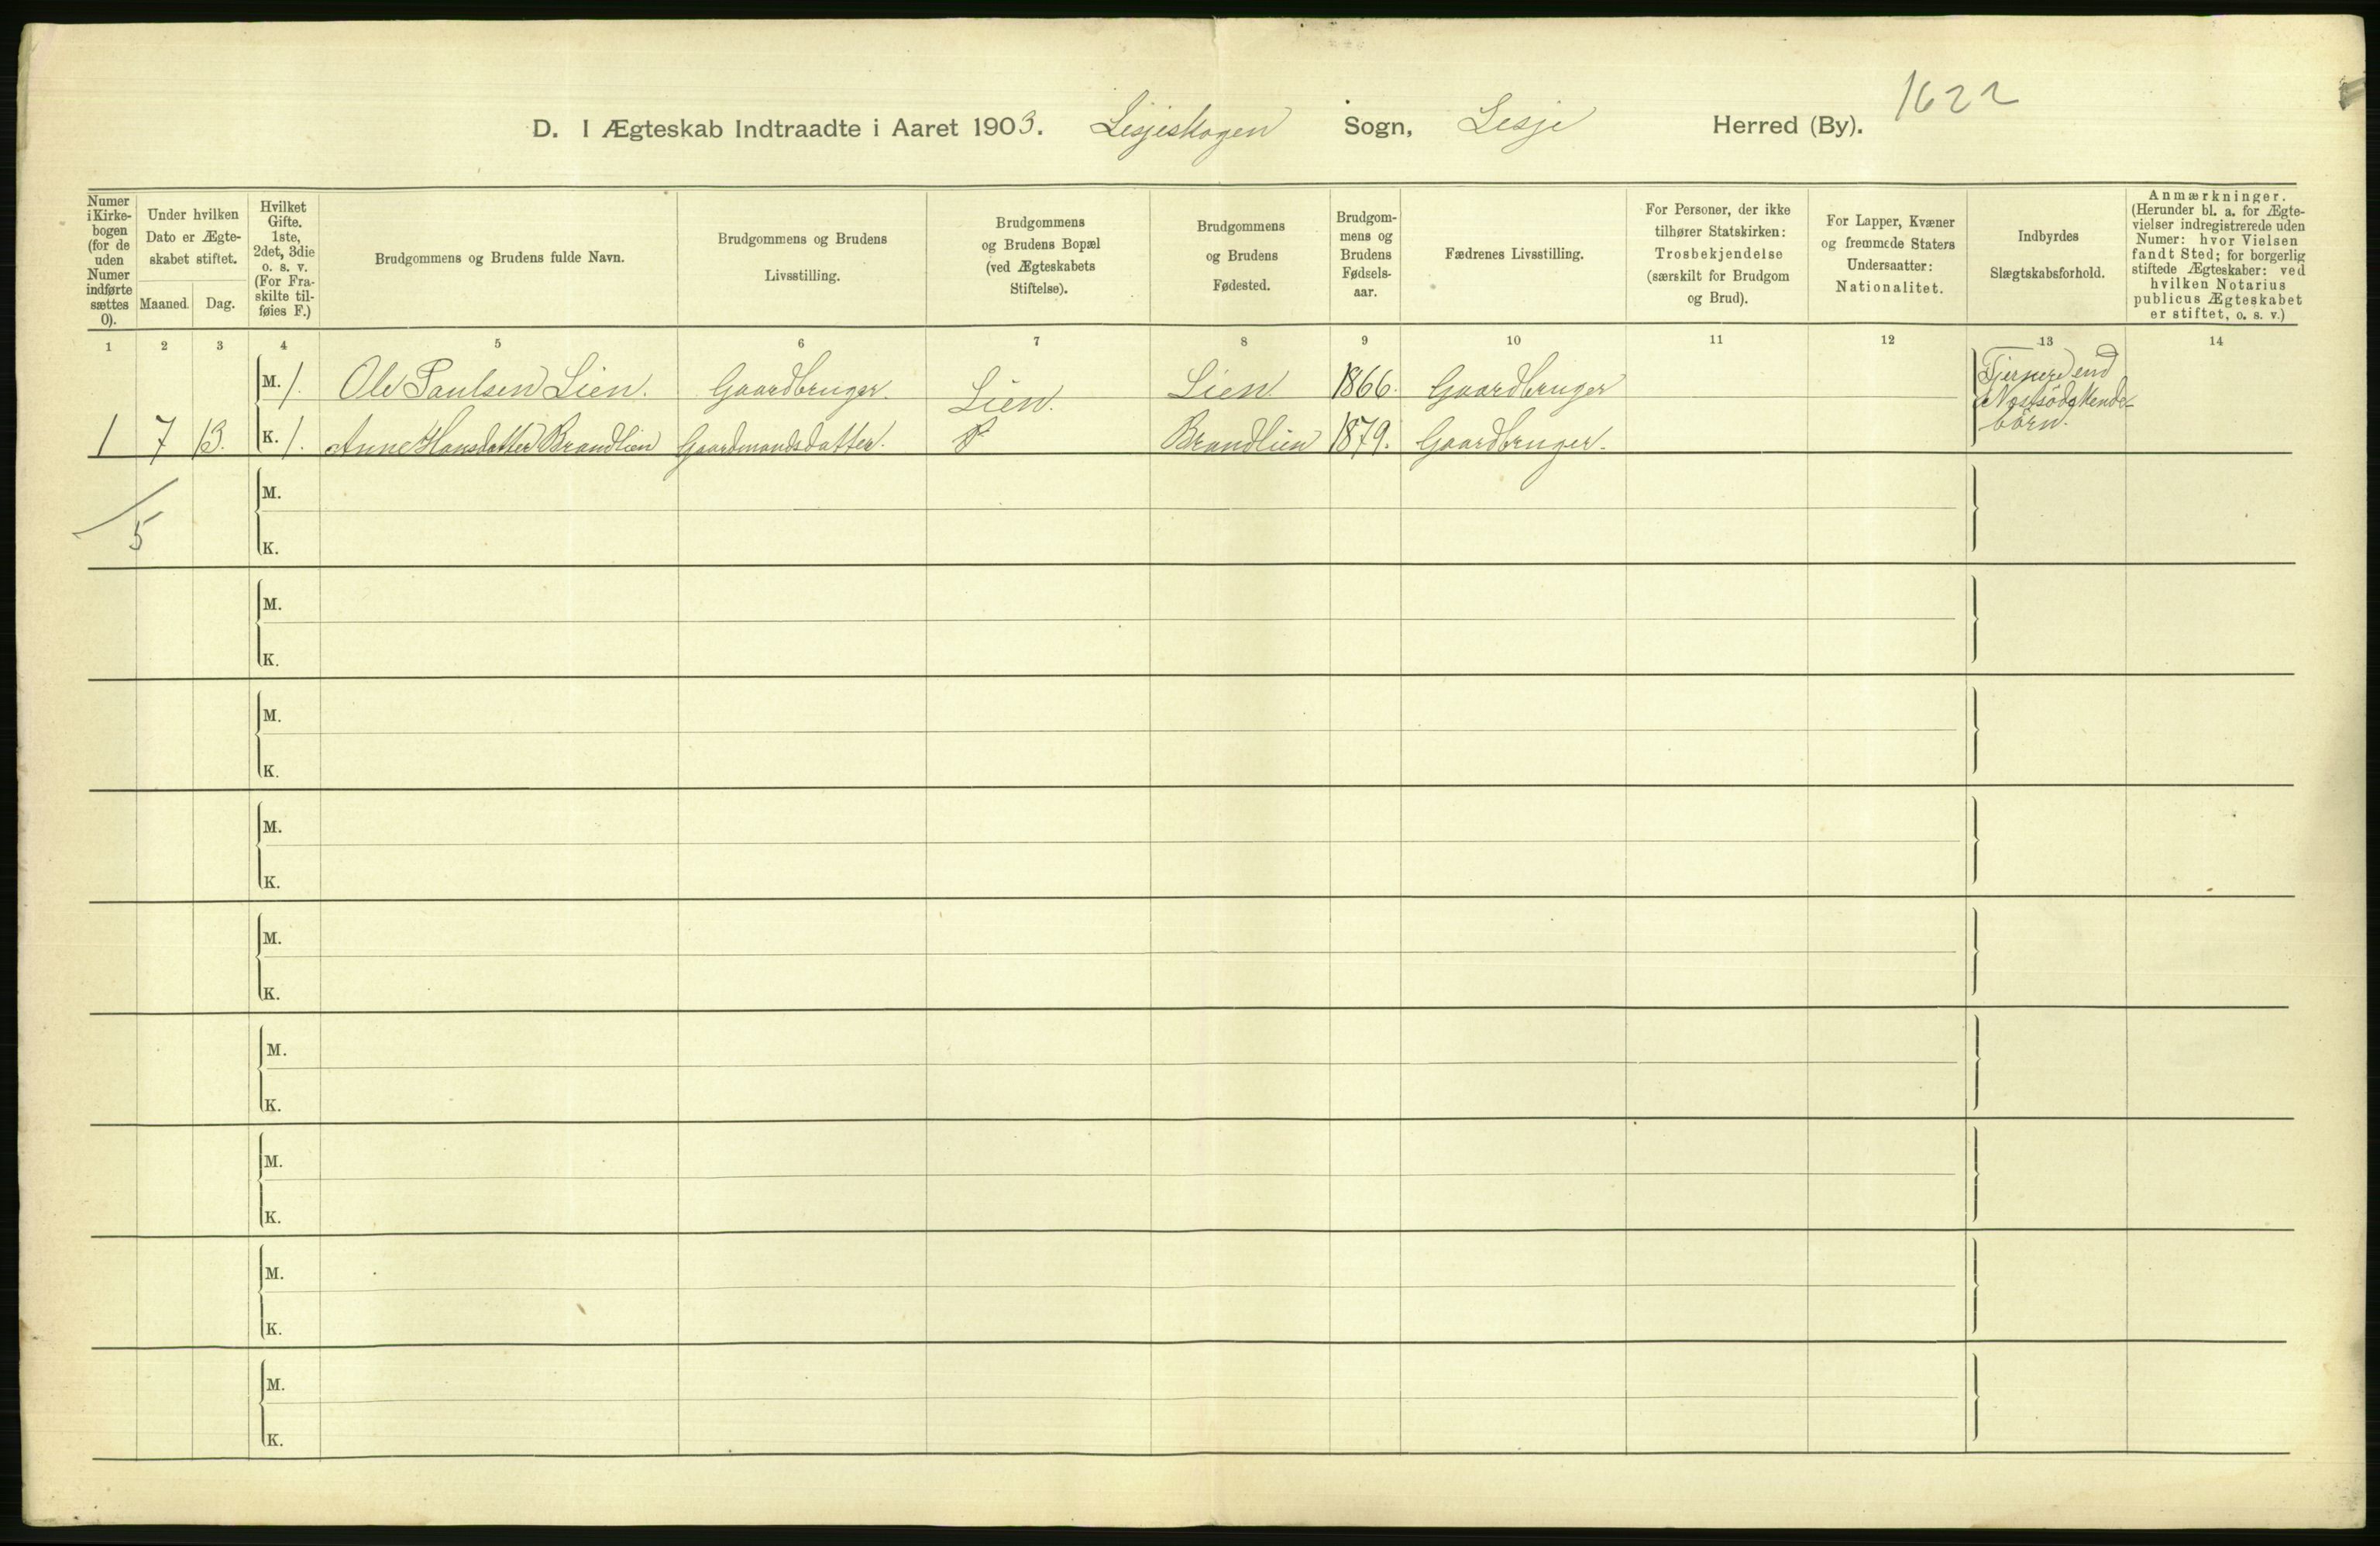 1622
D. I Ægteskab Indtraadte i Aaret 1903. Lesjeskogen Sogn, Lesje Herred (By).
Numer
i Kirke-
bogen
(for de
uden
Numer
indførte
sættes
0).
Under hvilken
Dato er Ægte-
skabet stiftet.
Maaned.
Dag.
Hvilket
Gifte.
1ste,
2det, 3die
o. s. v.
(For Fra-
skilte til-
føies F.)
Brudgommens og Brudens fulde Navn.
Brudgommens og Brudens
Livsstilling.
Brudgommens
og Brudens Bopæl
(ved Ægteskabets
Stiftelse).
Brudgommens
og Brudens
Fødested.
Brudgom-
mens og
Brudens
Fødsels-
aar.
Fædrenes Livsstilling.
For Personer, der ikke
tilhører Statskirken:
Trosbekjendelse
(særskilt for Brudgom
og Brud).
For Lapper, Kvæner
og fremmede Staters
Undersaatter:
Nationalitet.
Indbyrdes
Slægtskabsforhold.
Anmærkninger.
(Herunder bl. a. for Ægte-
vielser indregistrerede uden
Numer: hvor Vielsen
fandt Sted; for borgerlig
stiftede Ægteskaber: ved
hvilken Notarius
publicus Ægteskabet
er stiftet, o. s. v.)
1 2 3 4 5 6 7 8 9 10 11 12 13 14
M. 1. Ole Paulsen Lien. Gaardbruger. Lien. Lien 1866. Gaardbruger
Fjernere end
Næstsødskende-
börn.
1 7 13. K. 1. Anne Hansdatter Brandlien Gaardmandsdatter. Brandlien 1879. Gaardbruger.
M.
5
K.
M.
K.
M.
K.
M.
K.
M.
K.
M.
K.
M.
K.
M.
K.
M.
K.